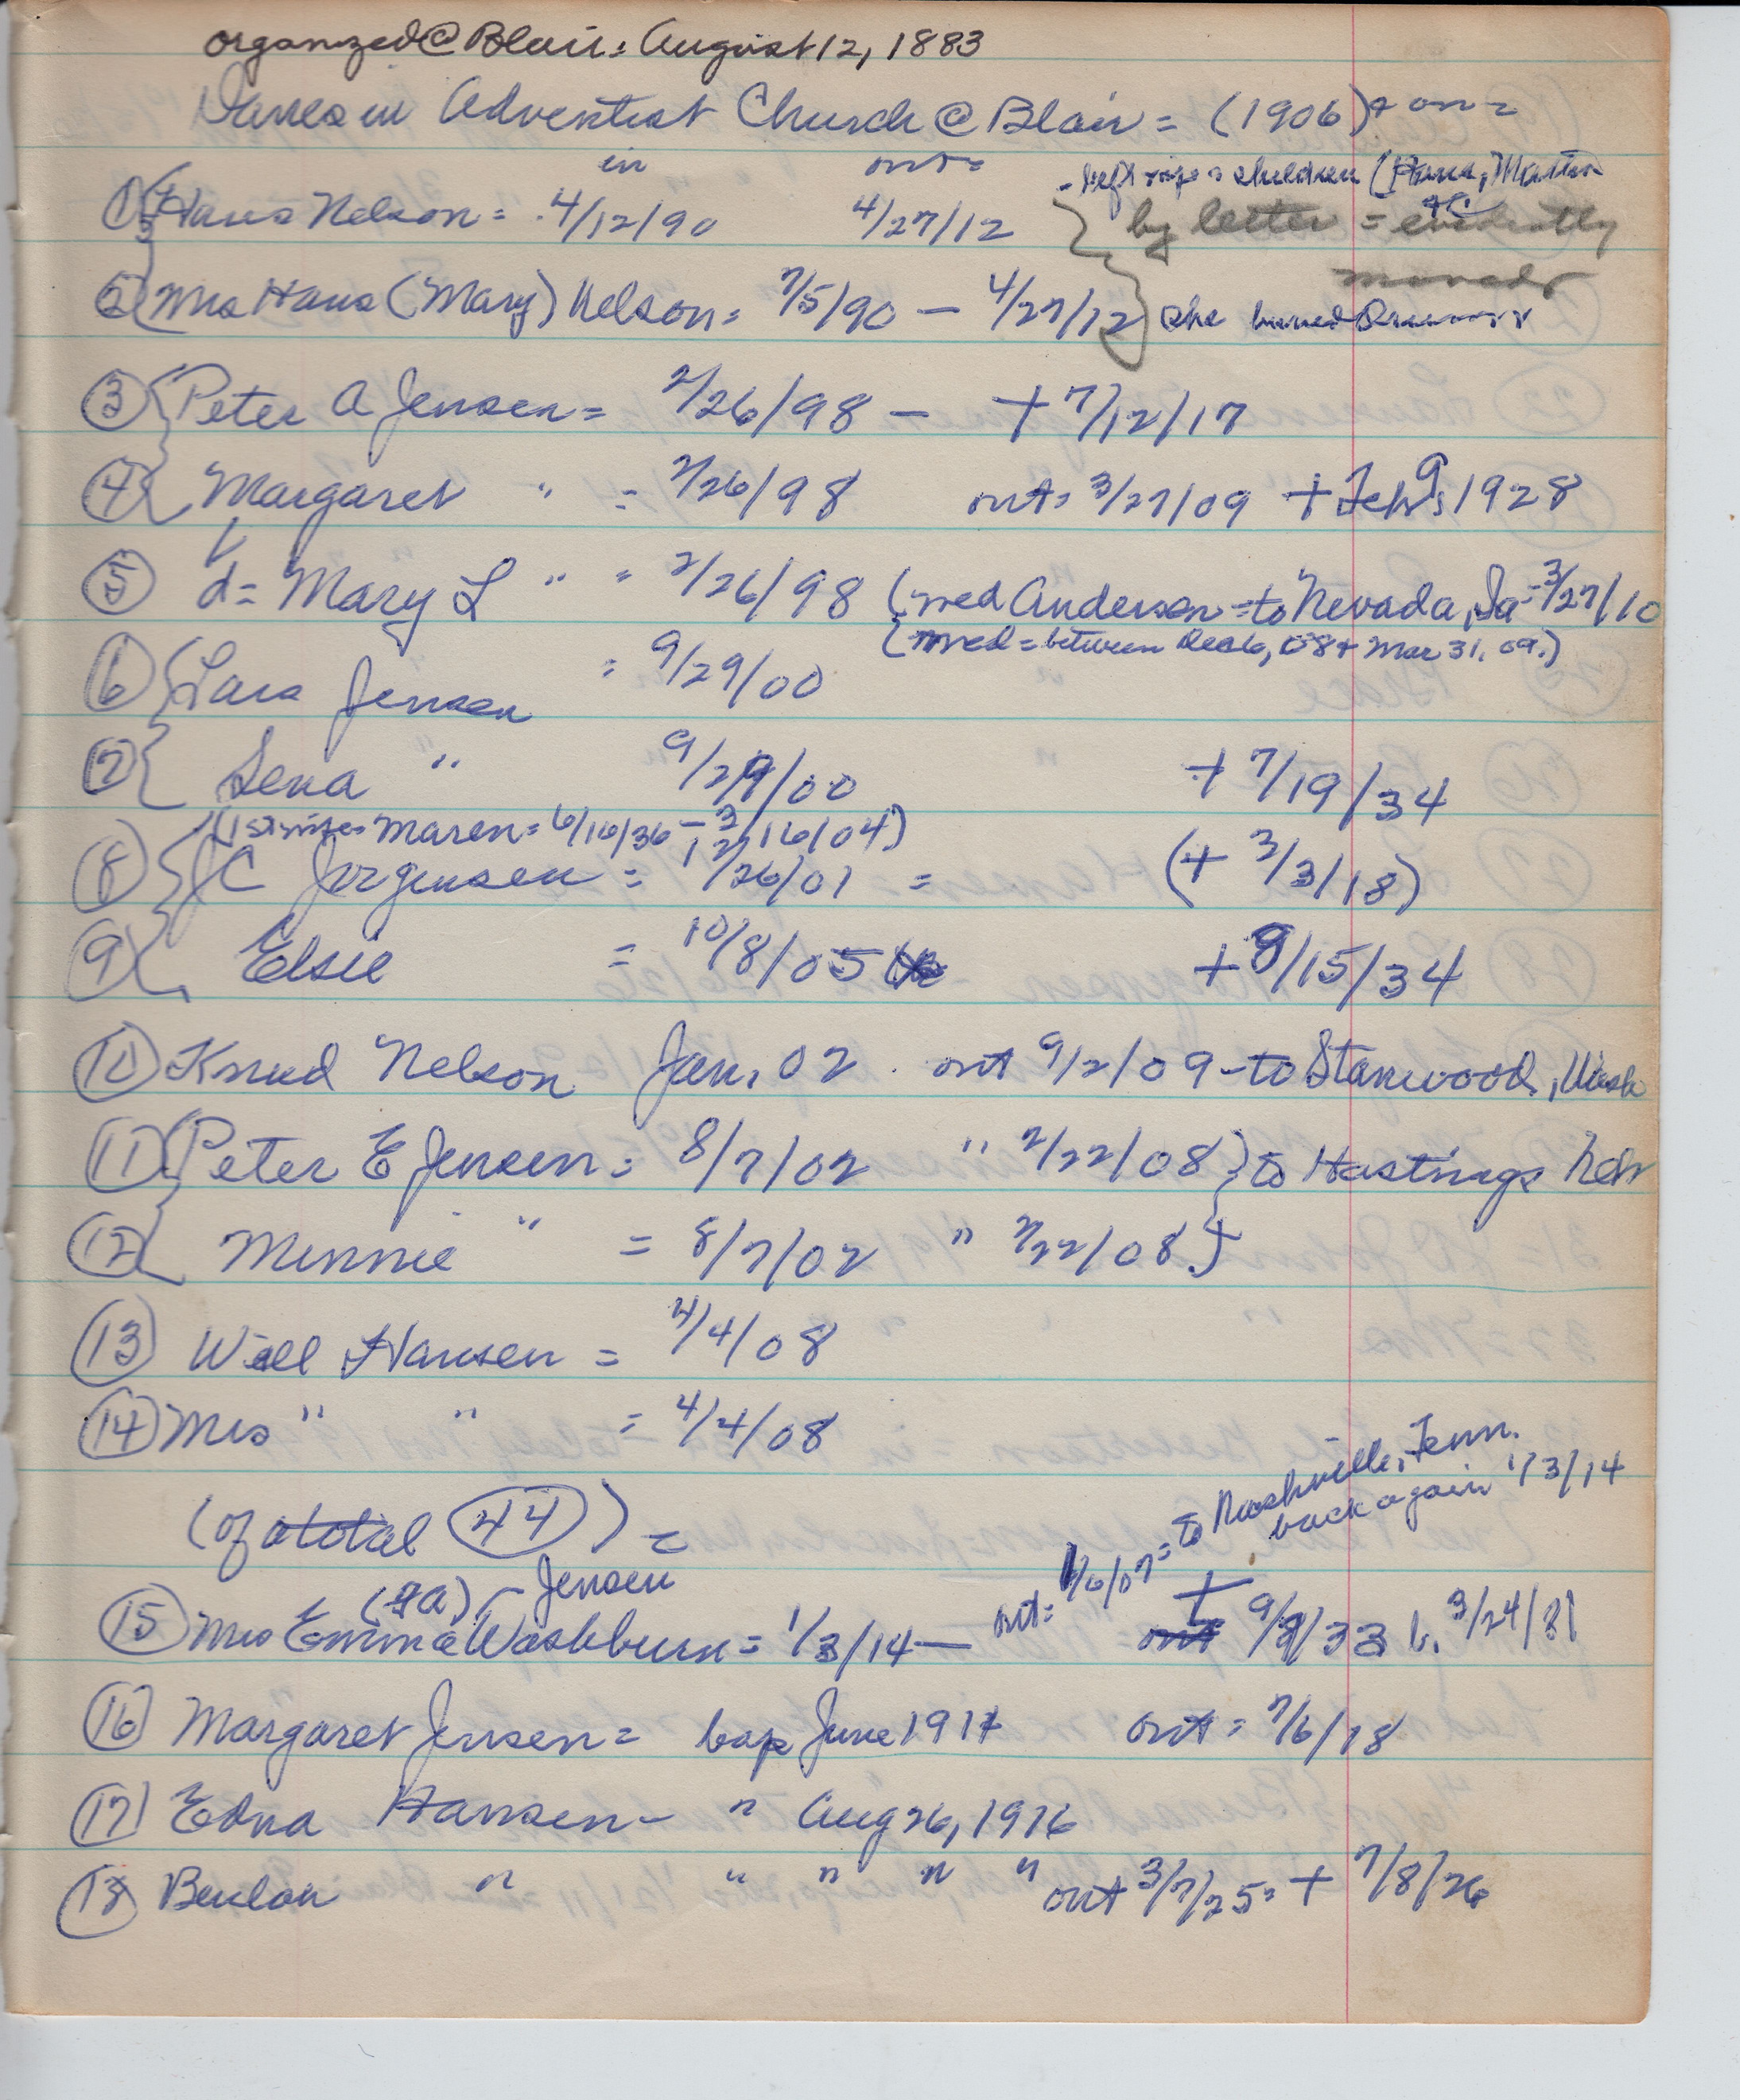 organized @ Blair: August 12, 1883
Danes in Adventist Church @ Blair = (1906) + on =
in out =
- left wife & children (Hans, Martin
+ C
① Hans Nelson = 4/12/90 4/27/12 by letter = evidently
moved
② Mrs Hans (Mary) Nelson = 7/5/90 – 4/27/12 she buried
③ Peter A Jensen = 2/26/98 – + 7/12/17
④ Margaret " = 2/26/98 out = 3/27/09 + Feb 9, 1928
⑤ d = Mary L " = 2/26/98 (med Andersen = to Nevada, Ia = 3/27/10
(med = between Dec 6, 08 + Mar 31, 09.)
⑥ Lars Jensen = 9/29/00
⑦ Lena " 9/29/00 + 7/19/34
(1st wife = Maren = 6/16/36 – 3/16/04)
⑧ JC Jorgensen = 1/26/01 = (+ 3/3/18)
⑨ Elsie = 10/8/05 + 9/15/34
⑩ Knud Nelson Jan. 02 out 9/2/09 – to Stanwood, Wash
⑪ Peter E Jensen = 8/7/02 " 2/22/08 } to Hastings Neb
⑫ Minnie " = 8/7/02 " 2/22/08 }
⑬ Will Hansen = 4/4/08
⑭ Mrs " " = 4/4/08
(of a total 44) =
to Nashville, Tenn.
back again 1/3/14
out = 1/6/07 =
(IA) – Jensen
⑮ Mrs Emma Washburn = 1/3/14 – + out 9/9/33 b. 3/24/81
⑯ Margaret Jensen = bap June 1917 out = 7/6/18
⑰ Edna Hansen – " Aug 26, 1916
⑱ Beulah " " " " " out 3/7/25 = + 7/8/26